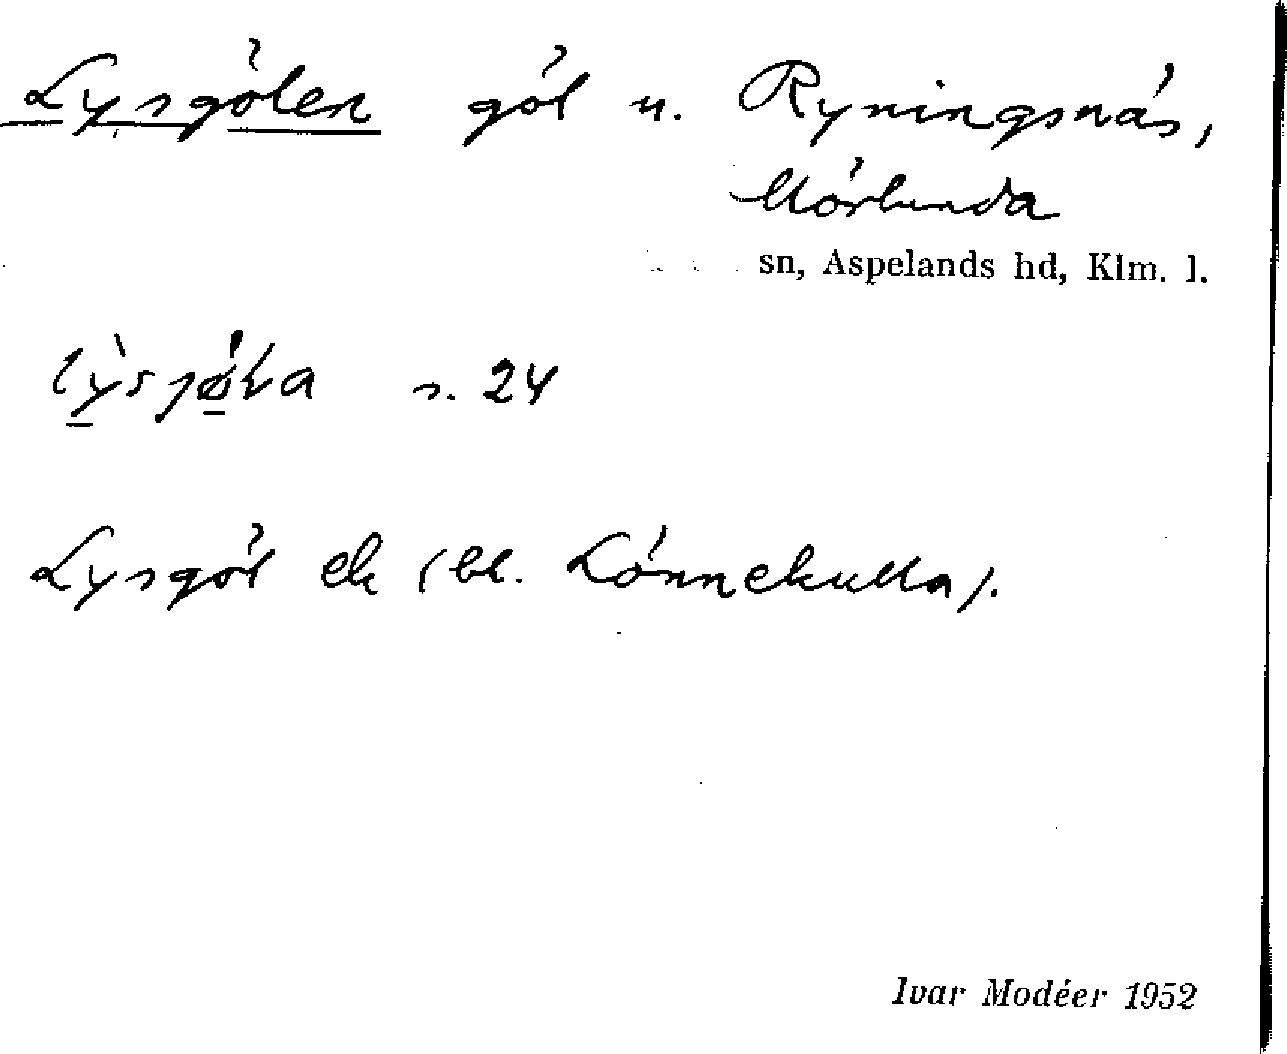 Lysgölen göl u. Ryningsnäs,
Mörlunda
sn, Aspelands hd, Klm. l.
s. 24
Lysgöl ek (bl. Lönnekulla).
Ivar Modéer 1952